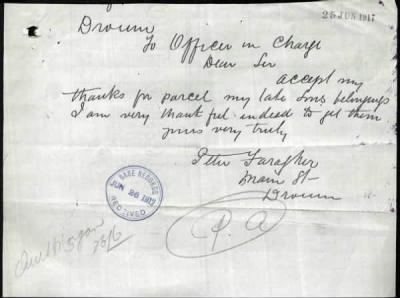 25 JUN 1917
Drouin
To Officer in Charge
Dear Sir
accept my
thanks for parcel my late Sons belongings
I am very thankful indeed to get them
yours very truly
Peter Faragher
Main St
Drouin
BASE RECORDS
JUN 26 1917
RECEIVED
P. A
25/6